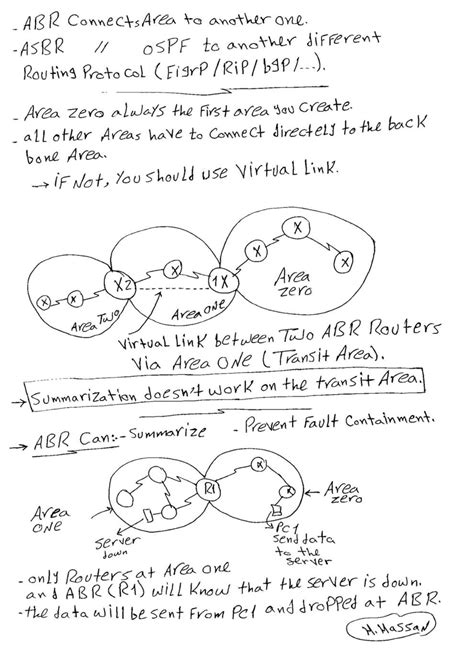 - ABR Connects Area to another one.
- ASBR // OSPF to another different
Routing Protocol (EigrP/RiP/bgP/...).
- Area zero always the First area you Create.
- all other Areas have to Connect directely to the back
bone Area.
→ iF Not, You should use Virtual Link.
X X X2 X 1X X X X
Area Two
Area ONE
Area
zero
Virtual Link between Two ABR Routers
Via Area ONE (Transit Area).
→ Summarization doesn't work on the transit Area.
→ ABR Can:- - Summarize - Prevent Fault Containment.
R1 X X
Area
ONE
Server
down
← Area
zero
PC1
Send data
to the
server
- only Routers at Area one
and ABR (R1) will Know that the server is down.
- the data will be sent From PC1 and dropped at ABR.
H.Hassan